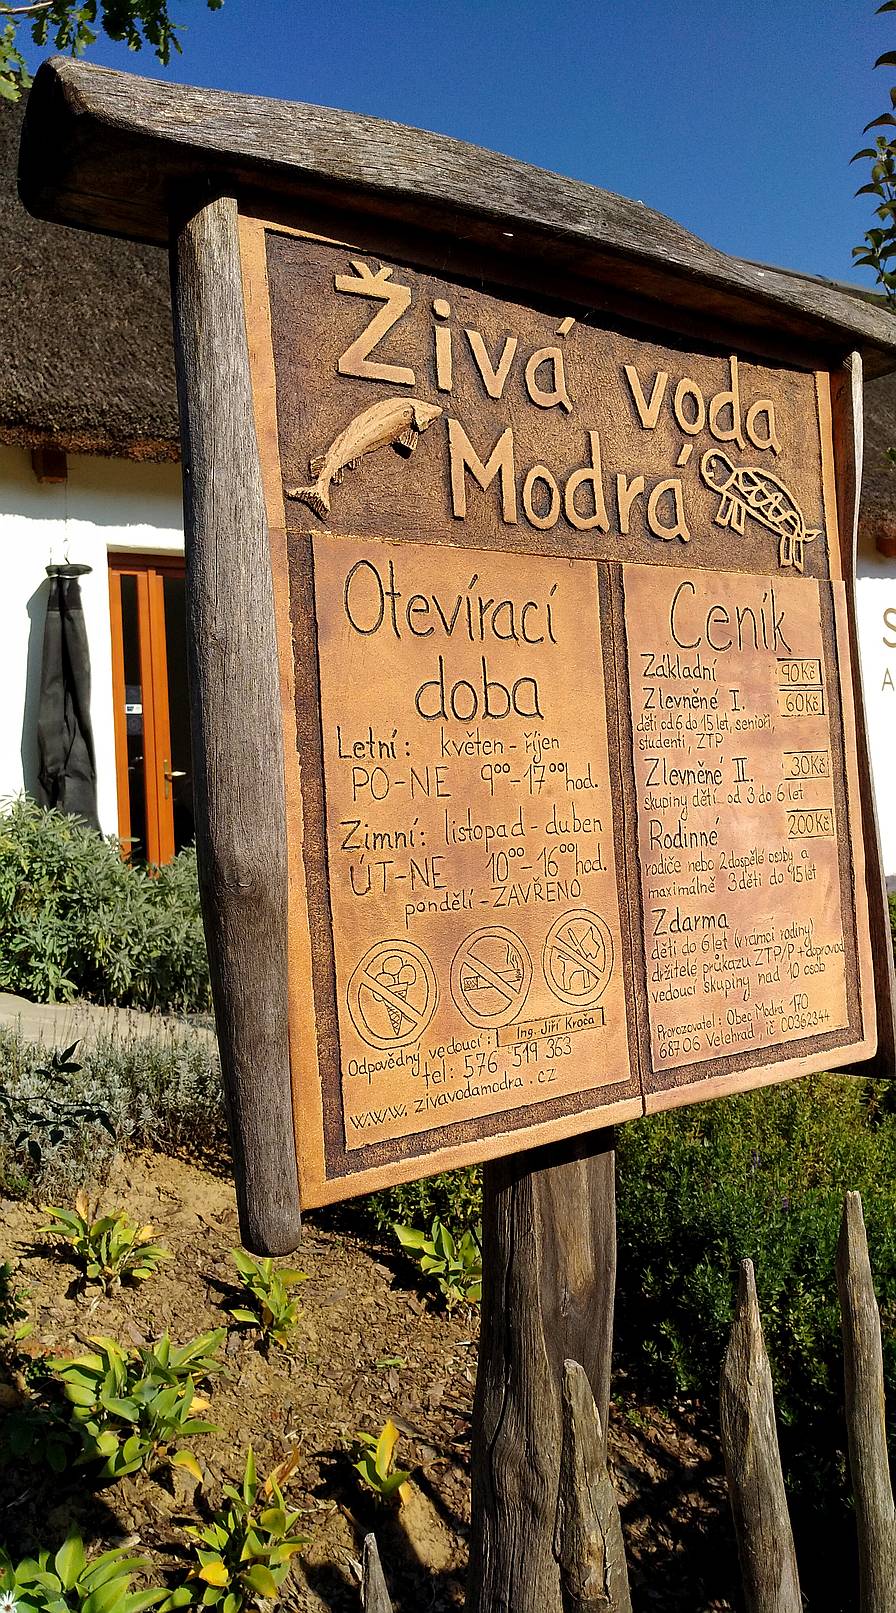 Živá voda
Modrá
Otevírací
doba
Letní: květen - říjen
PO-NE 9⁰⁰-17⁰⁰hod.
Zimní: listopad - duben
ÚT-NE 10⁰⁰-16⁰⁰hod.
pondělí - ZAVŘENO
Odpovědný vedoucí: Ing. Jiří Kroča
tel: 576 519 363
www.zivavodamodra.cz
Ceník
Základní 90Kč
Zlevněné I. 60Kč
děti od 6 do 15 let, senioři,
studenti, ZTP
Zlevněné II. 30Kč
skupiny dětí od 3 do 6 let
Rodinné 200Kč
rodiče nebo 2 dospělé osoby a
maximálně 3 děti do 15 let
Zdarma
děti do 6 let (v rámci rodiny)
držitelé průkazu ZTP/P + doprovod
vedoucí skupiny nad 10 osob
Provozovatel: Obec Modrá 170
687 06 Velehrad, ič 00362344
S
A